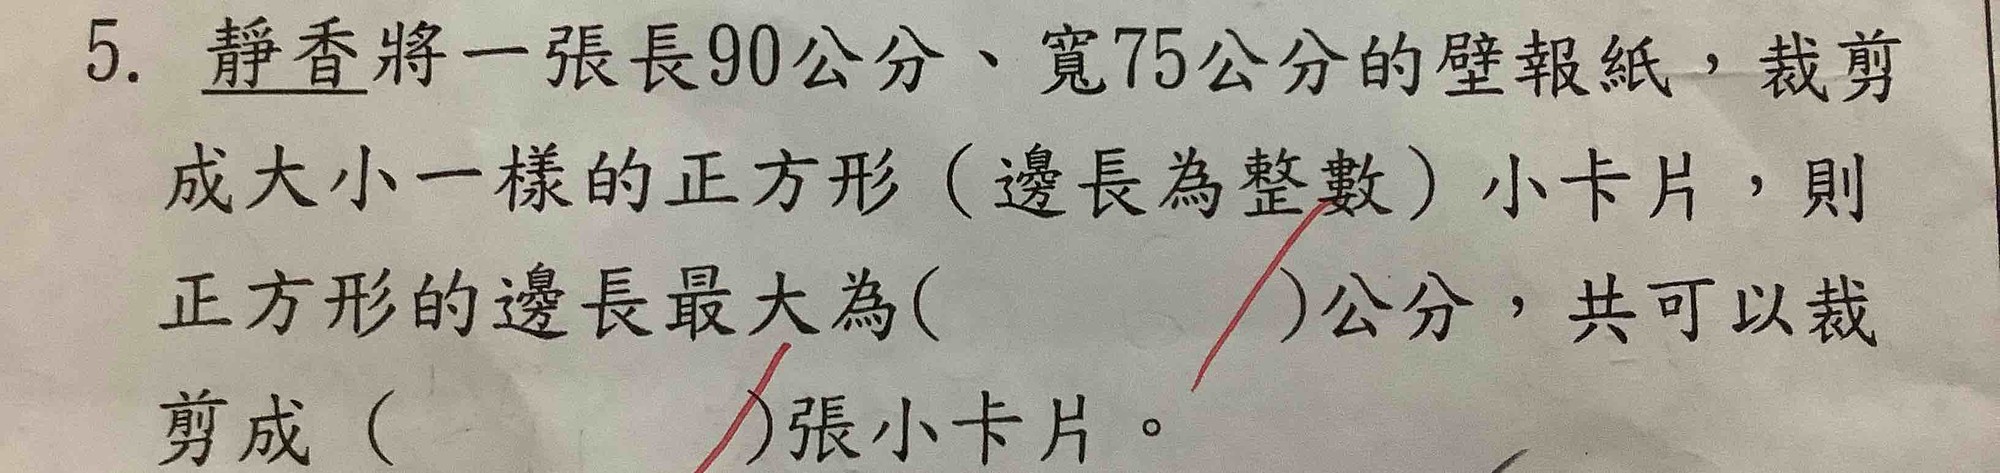 5. 靜香將一張長90公分、寬75公分的壁報紙，裁剪
成大小一樣的正方形（邊長為整數）小卡片，則
正方形的邊長最大為(　　　　)公分，共可以裁
剪成（　　　　)張小卡片。